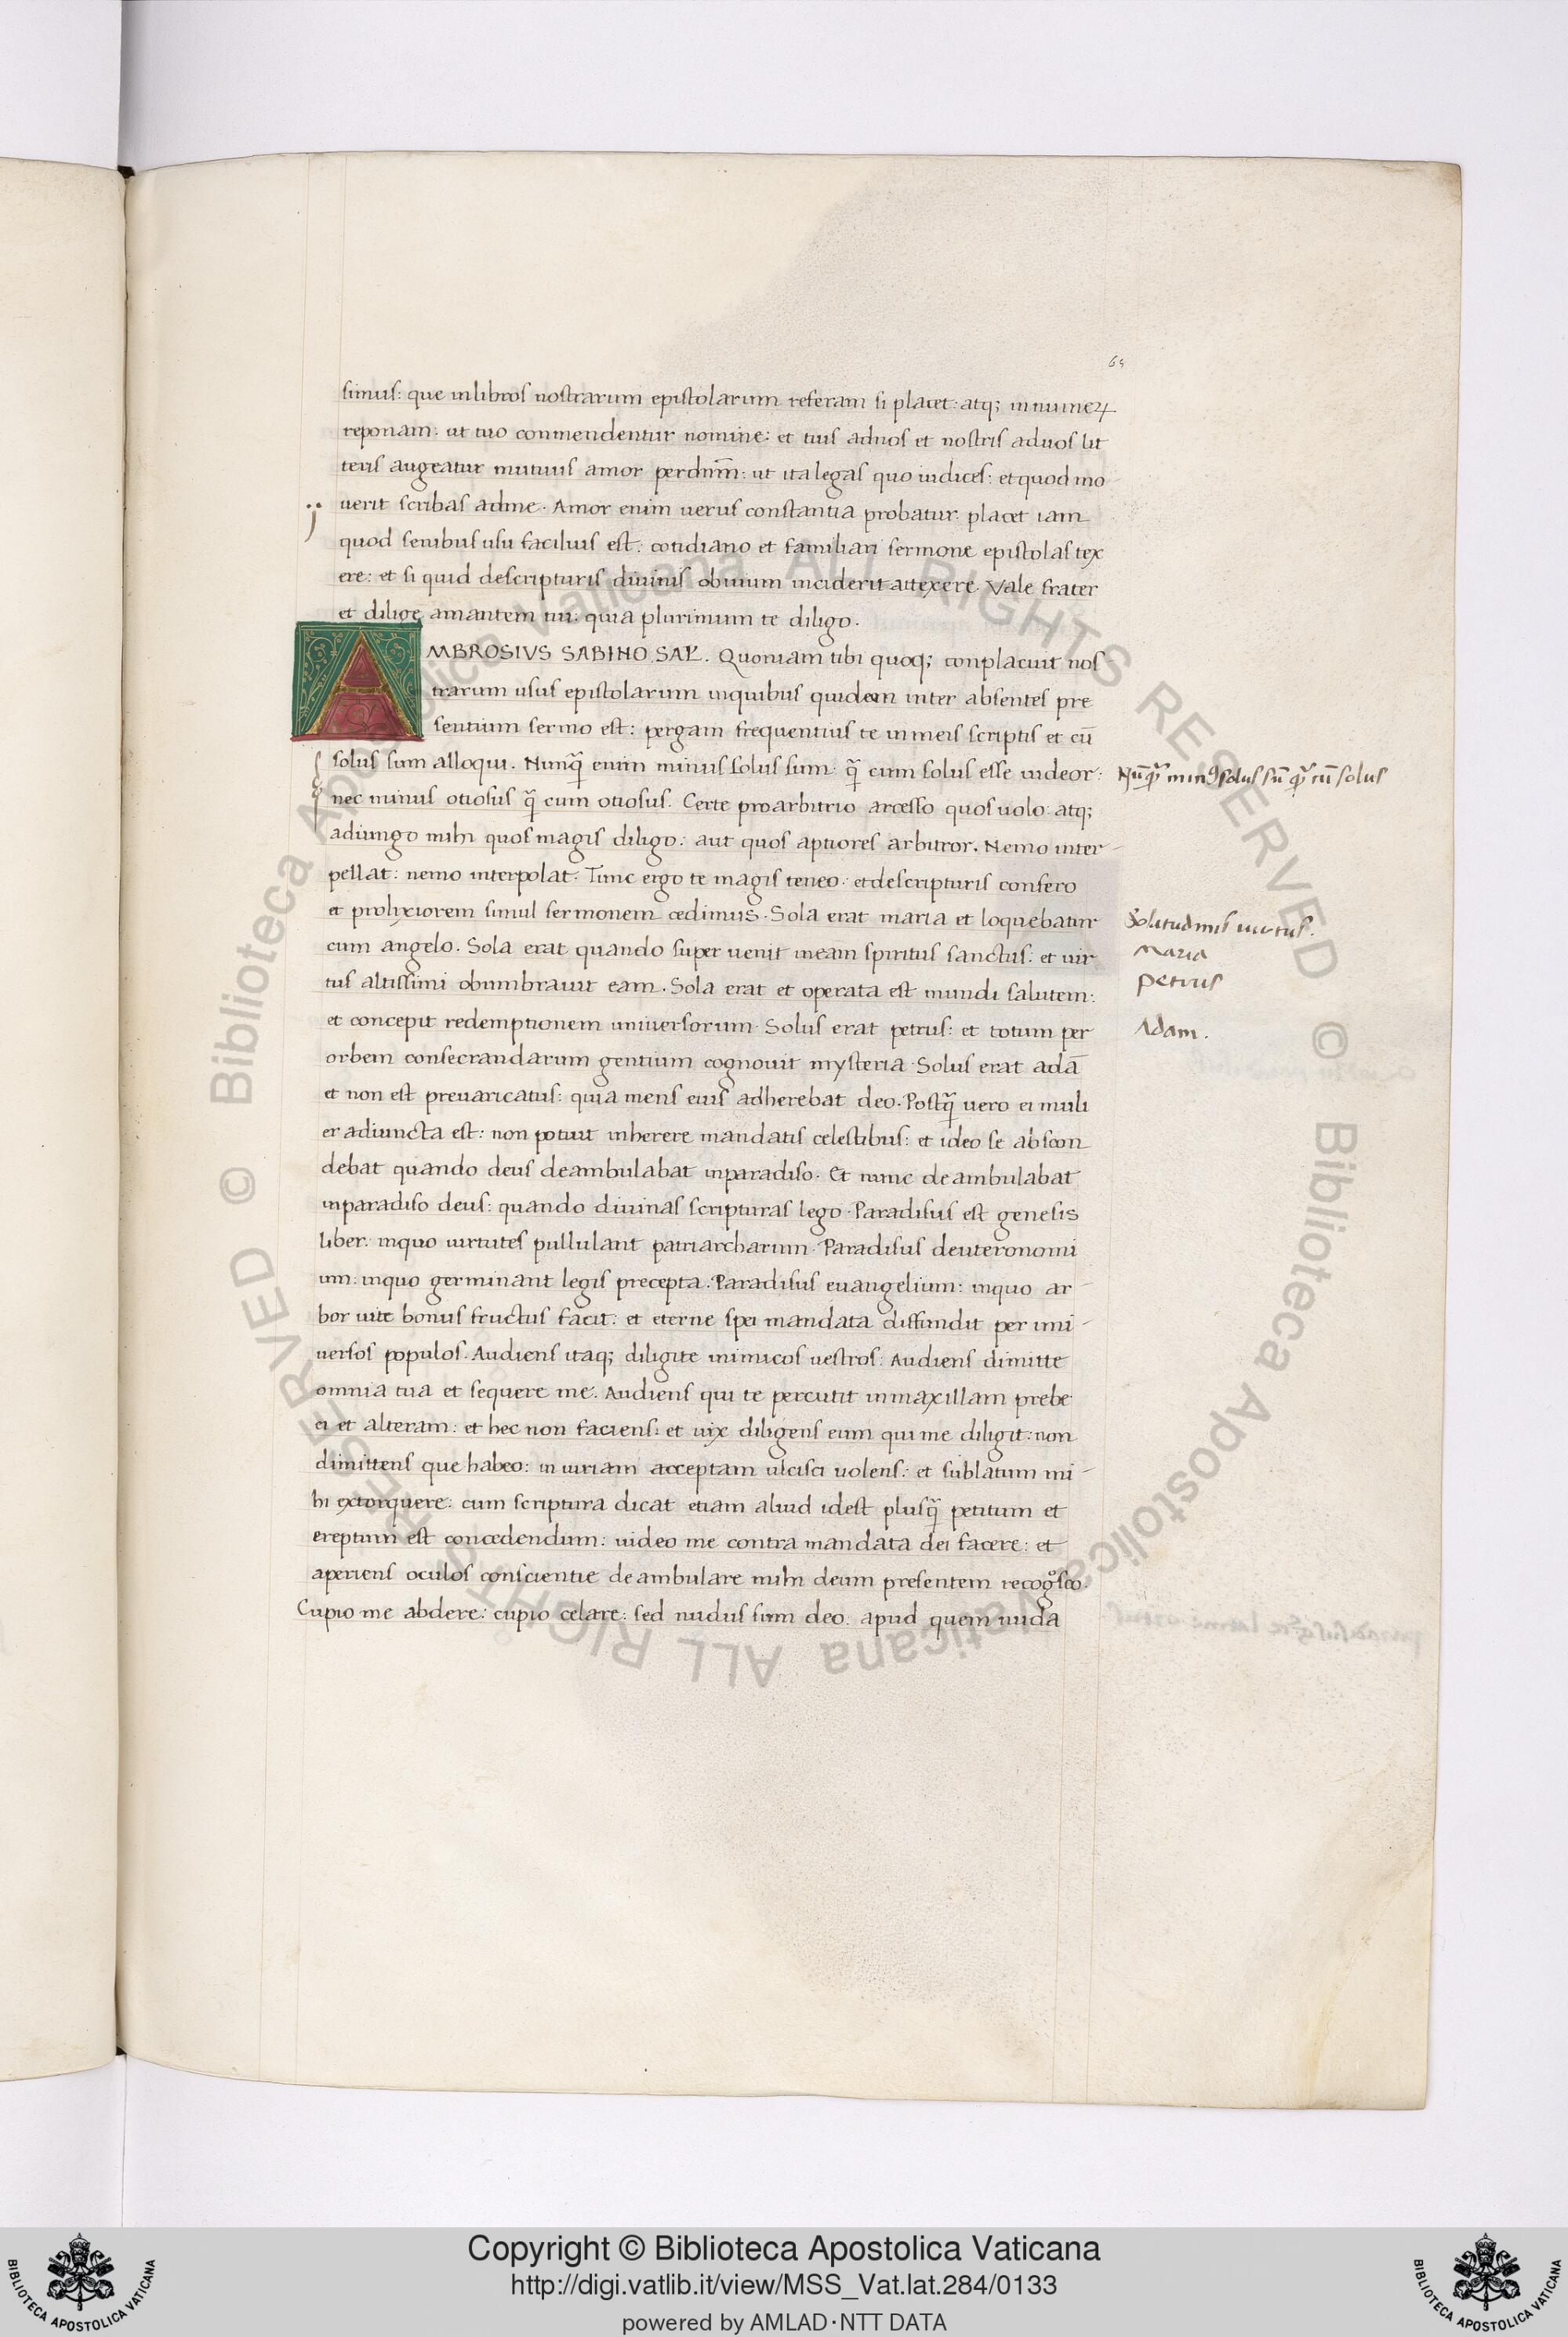 65
simus: que inlibros nostrarum epistolarum referam si placet: atq; in numeꝝ
reponam: ut tuo conmendentur nomine: et tuis aduos et nostris aduos lit
teris augeatur mutuus amor perdnm̄: ut ita legas quo iudices: et quod mo
uerit scribas adme. Amor enim uerus constantia probatur. placet iam
quod senibus usu facilius est: cotidiano et familiari sermone epistolas tex
ere: et si quid descripturis diuinis obuium inciderit attexere. Vale frater
et dilige amantem tui: quia plurimum te diligo.
AMBROSIVS SABINO SAL̄. Quoniam tibi quoq; conplacuit nos
trarum usus epistolarum inquibus quidem inter absentes pre
sentium sermo est: pergam frequentius te inmeis scriptis et cū
solus sum alloqui. Nunq̄ enim minus solus sum: q̄ cum solus esse uideor:
Nūq̄ minꝰ solus sū q̄ cū solus
nec minus otiosus q̄ cum otiosus. Certe proarbitrio arcesso quos uolo: atq;
adiungo mihi quos magis diligo: aut quos aptiores arbitror. Nemo inter-
pellat: nemo interpolat. Tunc ergo te magis teneo: et descripturis consero
et prolyxiorem simul sermonem cedimus. Sola erat maria et loquebatur
Solitudinis uirtus.
cum angelo. Sola erat quando super uenit ineam spiritus sanctus: et uir
Maria
tus altissimi obumbrauit eam. Sola erat et operata est mundi salutem:
Petrus
et concepit redemptionem uniuersorum. Solus erat petrus: et totum per
Adam.
orbem consecrandarum gentium cognouit mysteria. Solus erat adā
et non est preuaricatus: quia mens eius adherebat deo. Postq̄ uero ei muli
er adiuncta est: non potuit inherere mandatis celestibus: et ideo se abscon
debat quando deus deambulabat inparadiso. Et nunc deambulabat
inparadiso deus: quando diuinas scripturas lego. Paradisus est genesis
liber: inquo uirtutes pullulant patriarcharum. Paradisus deuteronomi
um: inquo germinant legis precepta. Paradisus euangelium: inquo ar-
bor uite bonus fructus facit: et eterne spei mandata diffundit per uni-
uersos populos. Audiens itaq; diligite inimicos uestros: Audiens dimitte
omnia tua et sequere me. Audiens qui te percutit inmaxillam prebe
ei et alteram: et hec non faciens: et uix diligens eum qui me diligit: non
dimittens que habeo: in iuriam acceptam ulcisci uolens: et sublatum mi-
hi extorquere: cum scriptura dicat etiam aliud idest plusq̄ petitum et
ereptum est concedendum: uideo me contra mandata dei facere: et
aperiens oculos conscientie deambulare mihi deum presentem recogͦsco.
Cupio me abdere: cupio celare: sed nudus sum deo: apud quem nuda
Copyright © Biblioteca Apostolica Vaticana
http://digi.vatlib.it/view/MSS_Vat.lat.284/0133
powered by AMLAD·NTT DATA
BIBLIOTECA APOSTOLICA VATICANA
BIBLIOTECA APOSTOLICA VATICANA
© Biblioteca Apostolica Vaticana ALL RIGHTS RESERVED
© Biblioteca Apostolica Vaticana ALL RIGHTS RESERVED